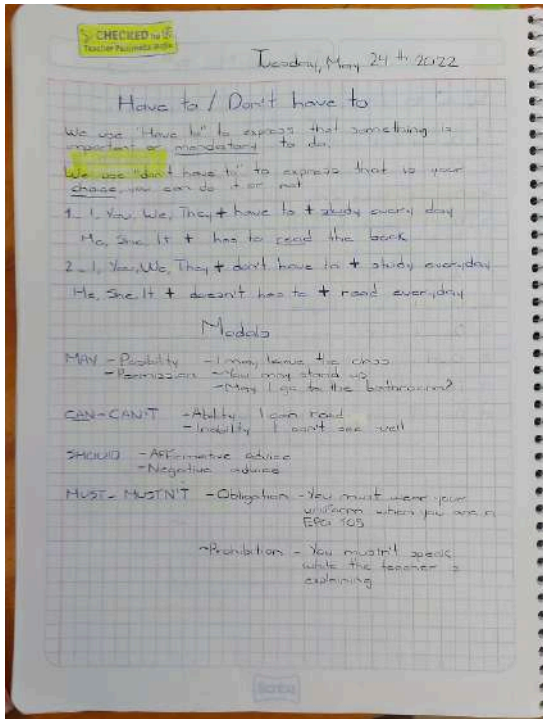 CHECKED
Teacher
Tuesday, May 24th 2022
Have to / Don't have to
We use "Have to" to express that something is
important or mandatory to do.
We use "don't have to" to express that is your
choice, you can do it or not
1_ I, You, We, They + have to + study every day
He, She, It + has to read the book
2_ I, You, We, They + don't have to + study everyday
He, She, It + doesn't has to + read everyday
Modals
MAY - Posibility - I may leave the class
- Permission - You may stand up
- May I go to the bathroom?
CAN - CAN'T - Ability I can read
- Inability I can't see well
SHOULD - Affirmative advice
- Negative advice
MUST - MUSTN'T - Obligation - You must wear your
uniform when you are in
- Prohibition - You mustn't speak
while the teacher is
explaining
Scribe